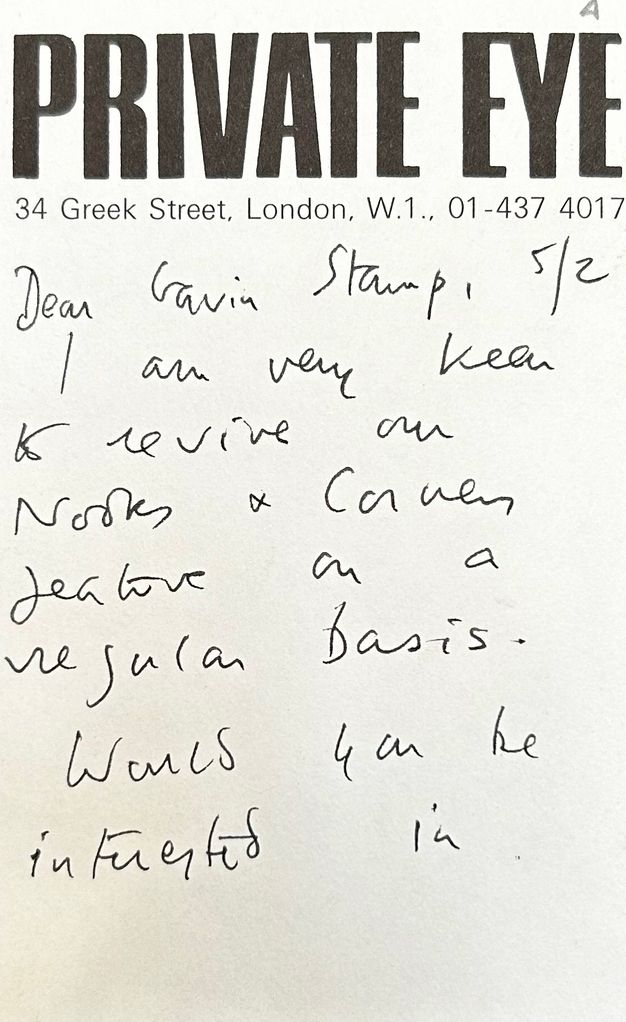 A
PRIVATE EYE
34 Greek Street, London, W.1., 01-437 4017
Dear Gavin Stamp, 5/2
I am very keen
to revive our
Nooks & Corners
feature on a
regular basis.
Would you be
interested in